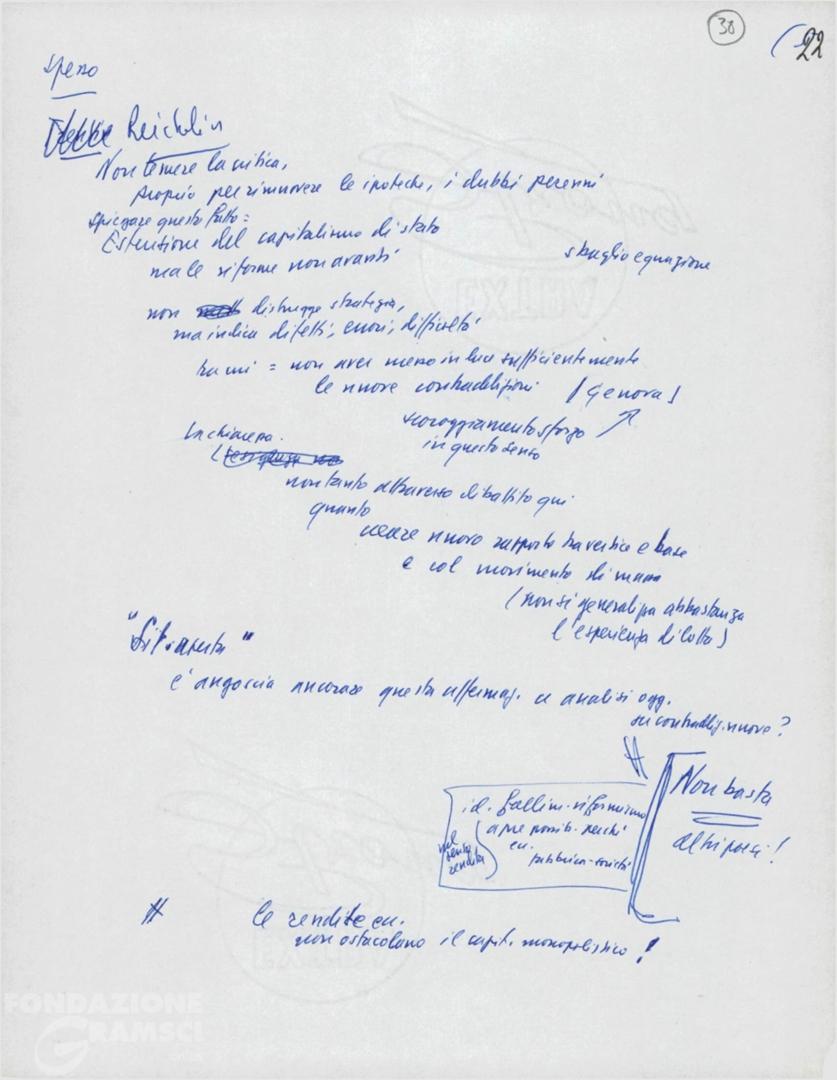 30
22
spesso
Reichlin
Non temere la critica,
proprio per rimuovere le ipoteche, i dubbi perenni
spiegare questo fatto =
Estensione del capitalismo di stato
ma le riforme non avanti
sbaglio equazione
non distrugge strategia,
ma indica difetti, errori, difficoltà
tra cui = non aver messo in luce sufficientemente
le nuove contraddizioni (Genova)
scoraggiamento sforzo
in questo senso
Inchiesta.
non tanto attraverso dibattito qui
quanto
creare nuovo rapporto tra vertice e base
e col movimento di massa
(non si generalizza abbastanza
l'esperienza di lotta)
"Sit. aperta"
è angoscia ancorare questa affermaz. a analisi ogg.
su contraddiz. nuove?
#
Non basta
altri paesi!
id. fallim. riformismo
apre possib. perché
ecc.
pubblica-società
nel
senso
rendita
# le rendite ecc.
non ostacolano il capit. monopolistico!
FONDAZIONE
GRAMSCI